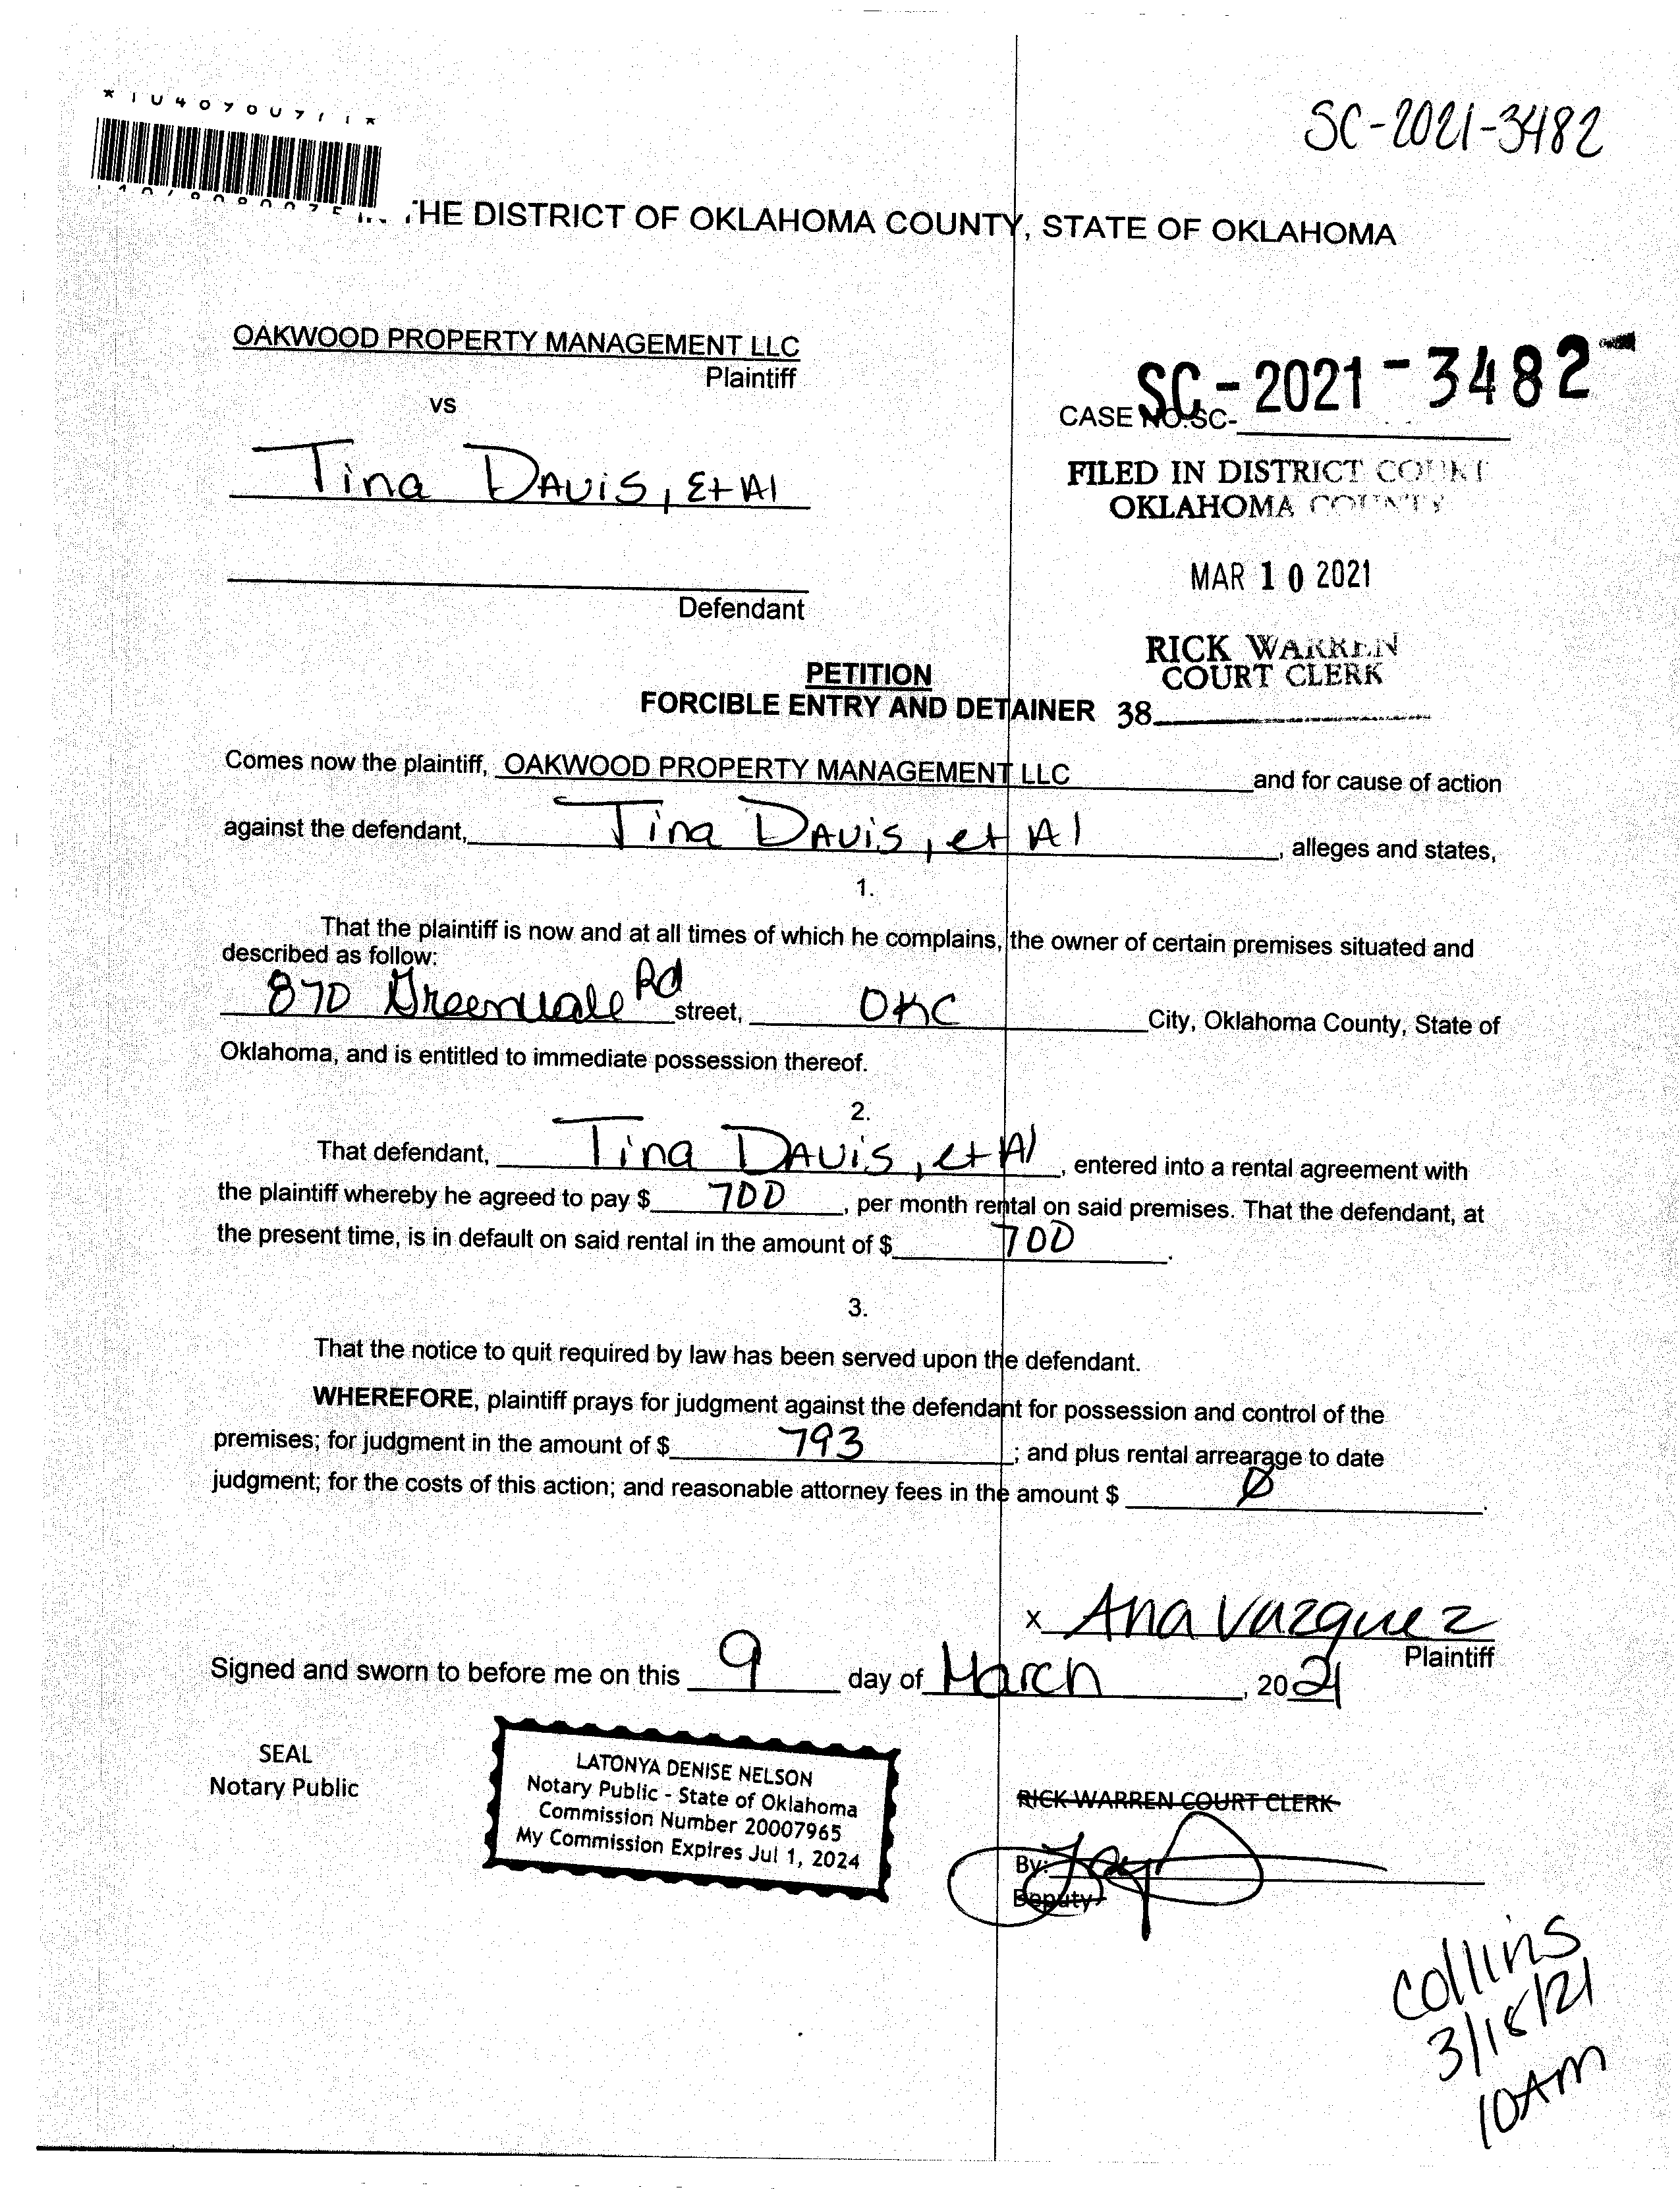 SC-2021-3482
THE DISTRICT OF OKLAHOMA COUNTY, STATE OF OKLAHOMA
OAKWOOD PROPERTY MANAGEMENT LLC
Plaintiff
vs
Tina Davis, Et Al
Defendant
CASE NO.SC- SC-2021-3482
FILED IN DISTRICT COURT
OKLAHOMA COUNTY
MAR 10 2021
RICK WARREN
COURT CLERK
38
PETITION
FORCIBLE ENTRY AND DETAINER
Comes now the plaintiff, OAKWOOD PROPERTY MANAGEMENT LLC and for cause of action
against the defendant, Tina Davis, et Al, alleges and states,
1.
That the plaintiff is now and at all times of which he complains, the owner of certain premises situated and
described as follow:
870 Greenvale Rd street, OKC City, Oklahoma County, State of
Oklahoma, and is entitled to immediate possession thereof.
2.
That defendant, Tina Davis, et Al, entered into a rental agreement with
the plaintiff whereby he agreed to pay $ 700, per month rental on said premises. That the defendant, at
the present time, is in default on said rental in the amount of $ 700.
3.
That the notice to quit required by law has been served upon the defendant.
WHEREFORE, plaintiff prays for judgment against the defendant for possession and control of the
premises; for judgment in the amount of $ 793; and plus rental arrearage to date
judgment; for the costs of this action; and reasonable attorney fees in the amount $ Ø.
x Ana Vazquez
Plaintiff
Signed and sworn to before me on this 9 day of March, 2021
SEAL
Notary Public
LATONYA DENISE NELSON
Notary Public - State of Oklahoma
Commission Number 20007965
My Commission Expires Jul 1, 2024
RICK WARREN COURT CLERK
By:
Deputy
Collins
10AM